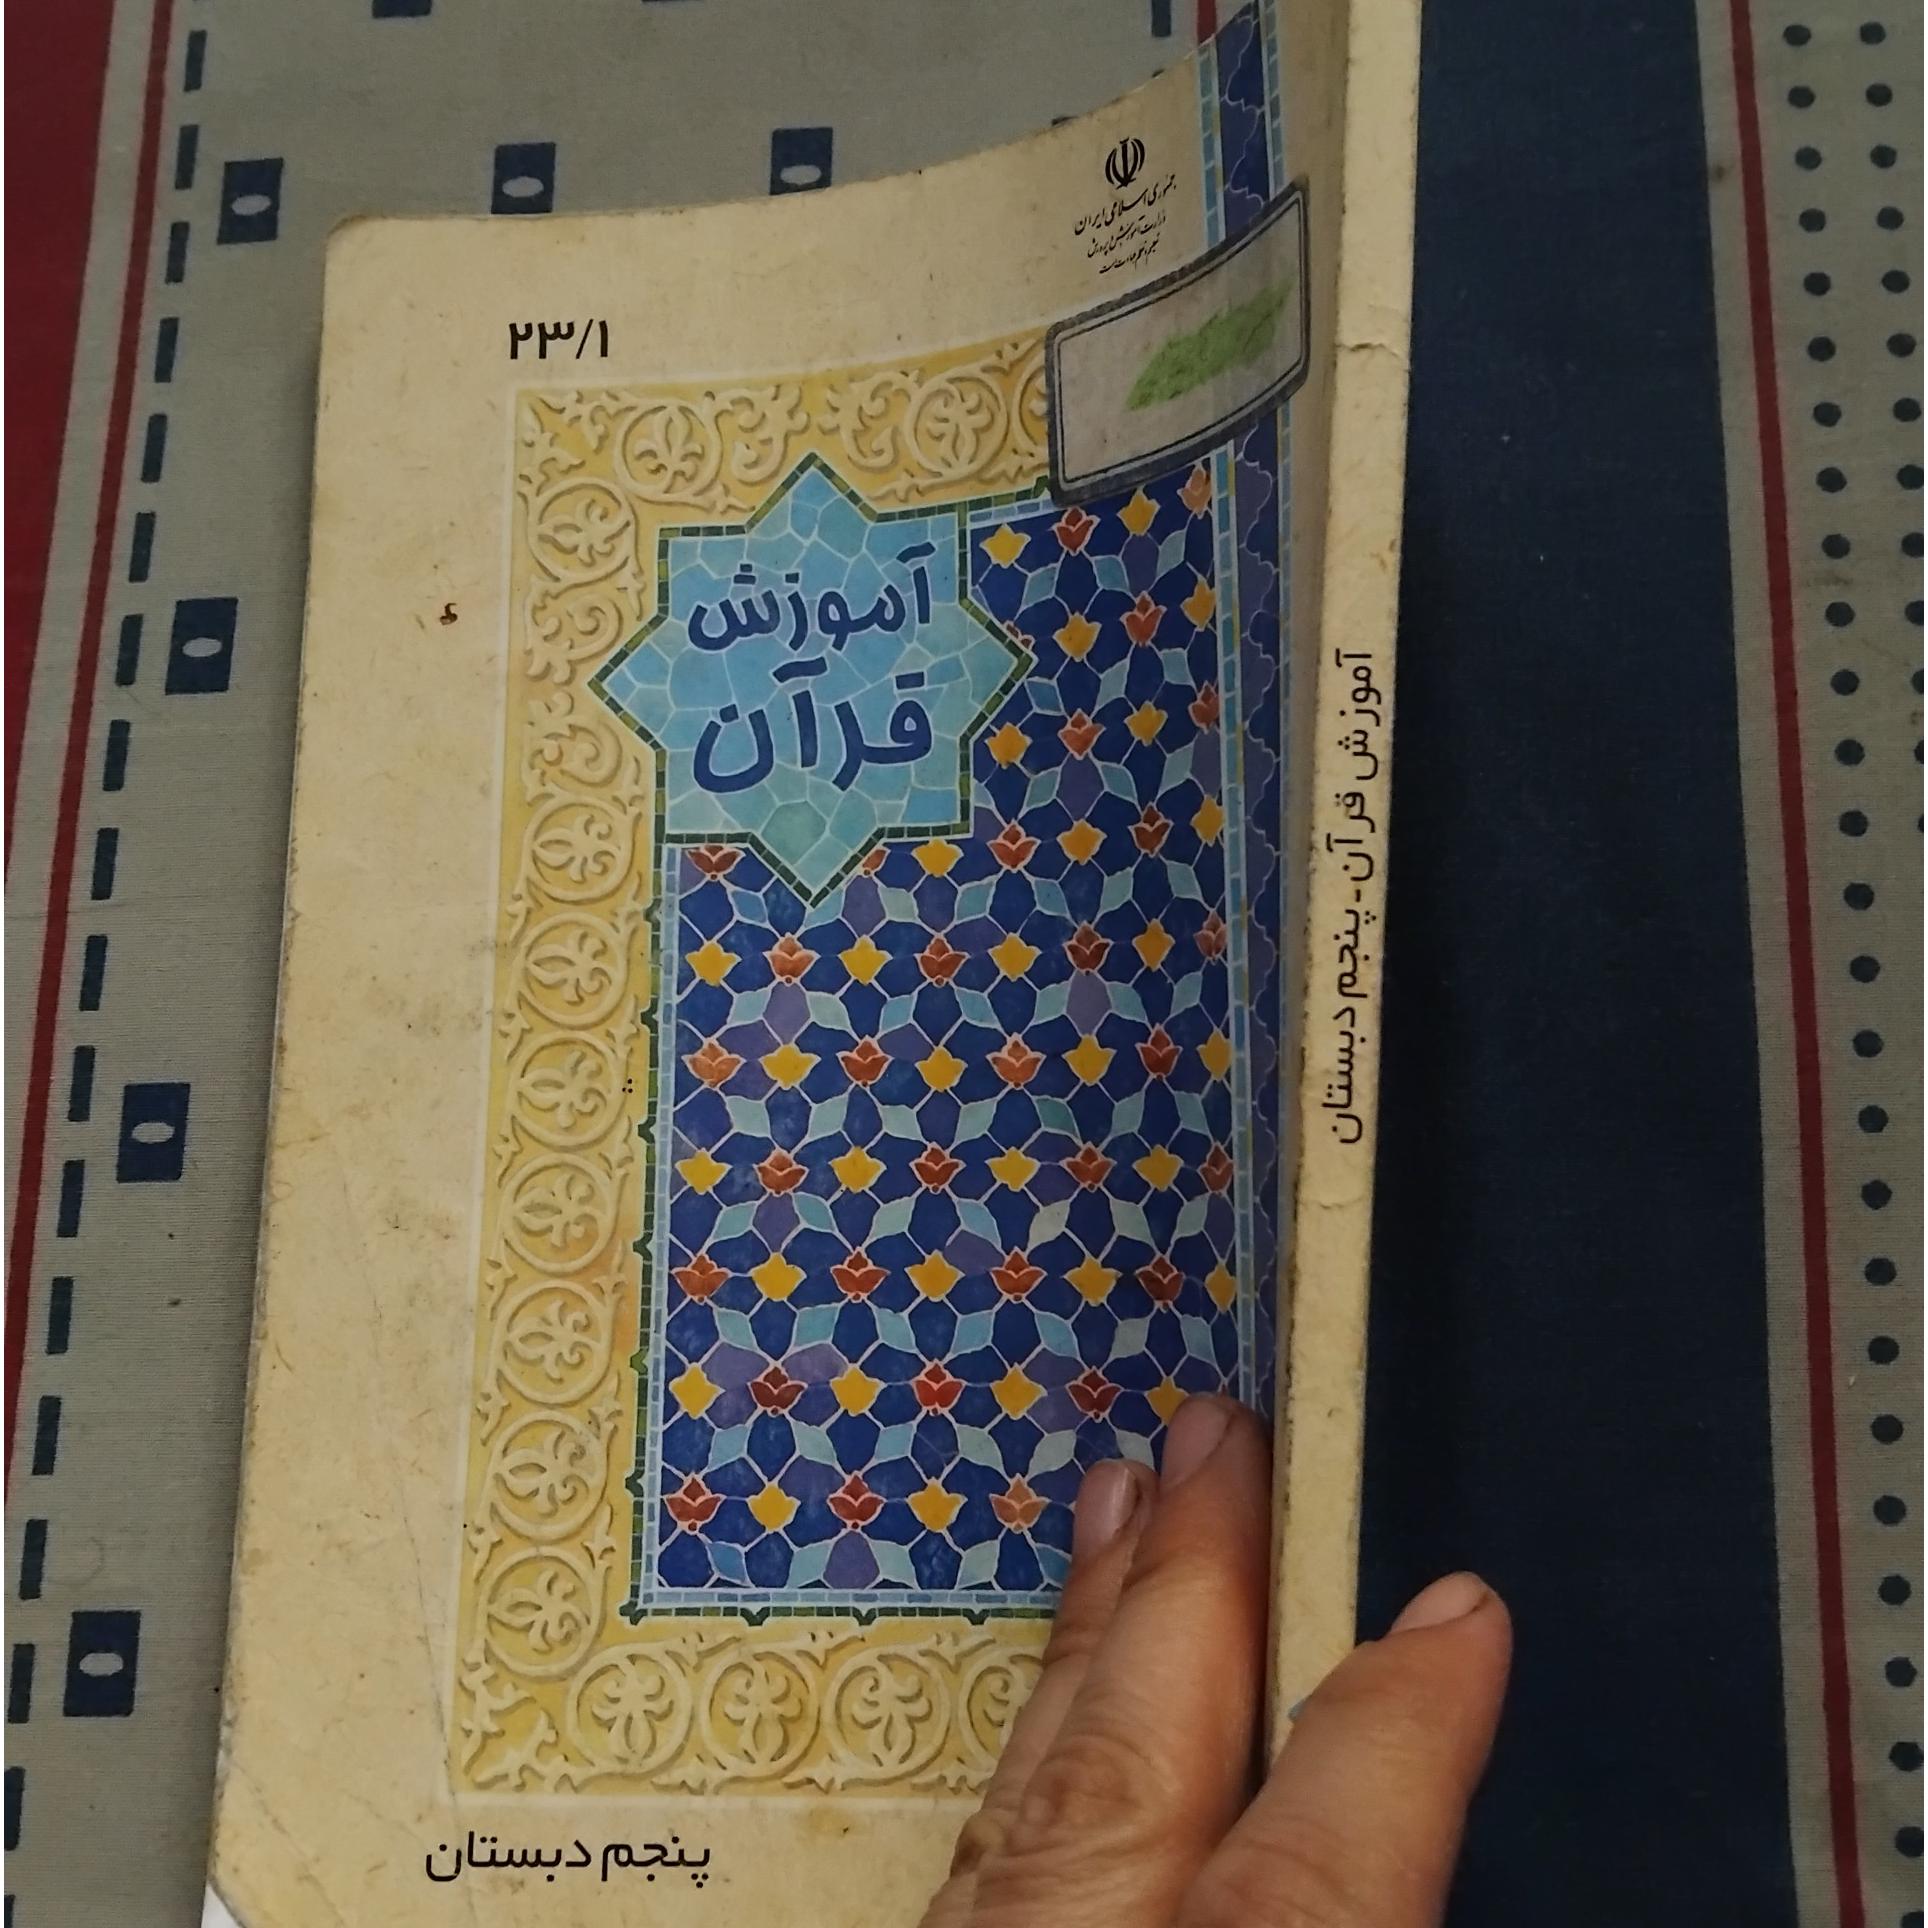 جمهوری اسلامی ایران
وزارت آموزش و پرورش
تعلیم و تعلم عبادت است
۲۳/۱
آموزش
قرآن
پنجم دبستان
آموزش قرآن - پنجم دبستان